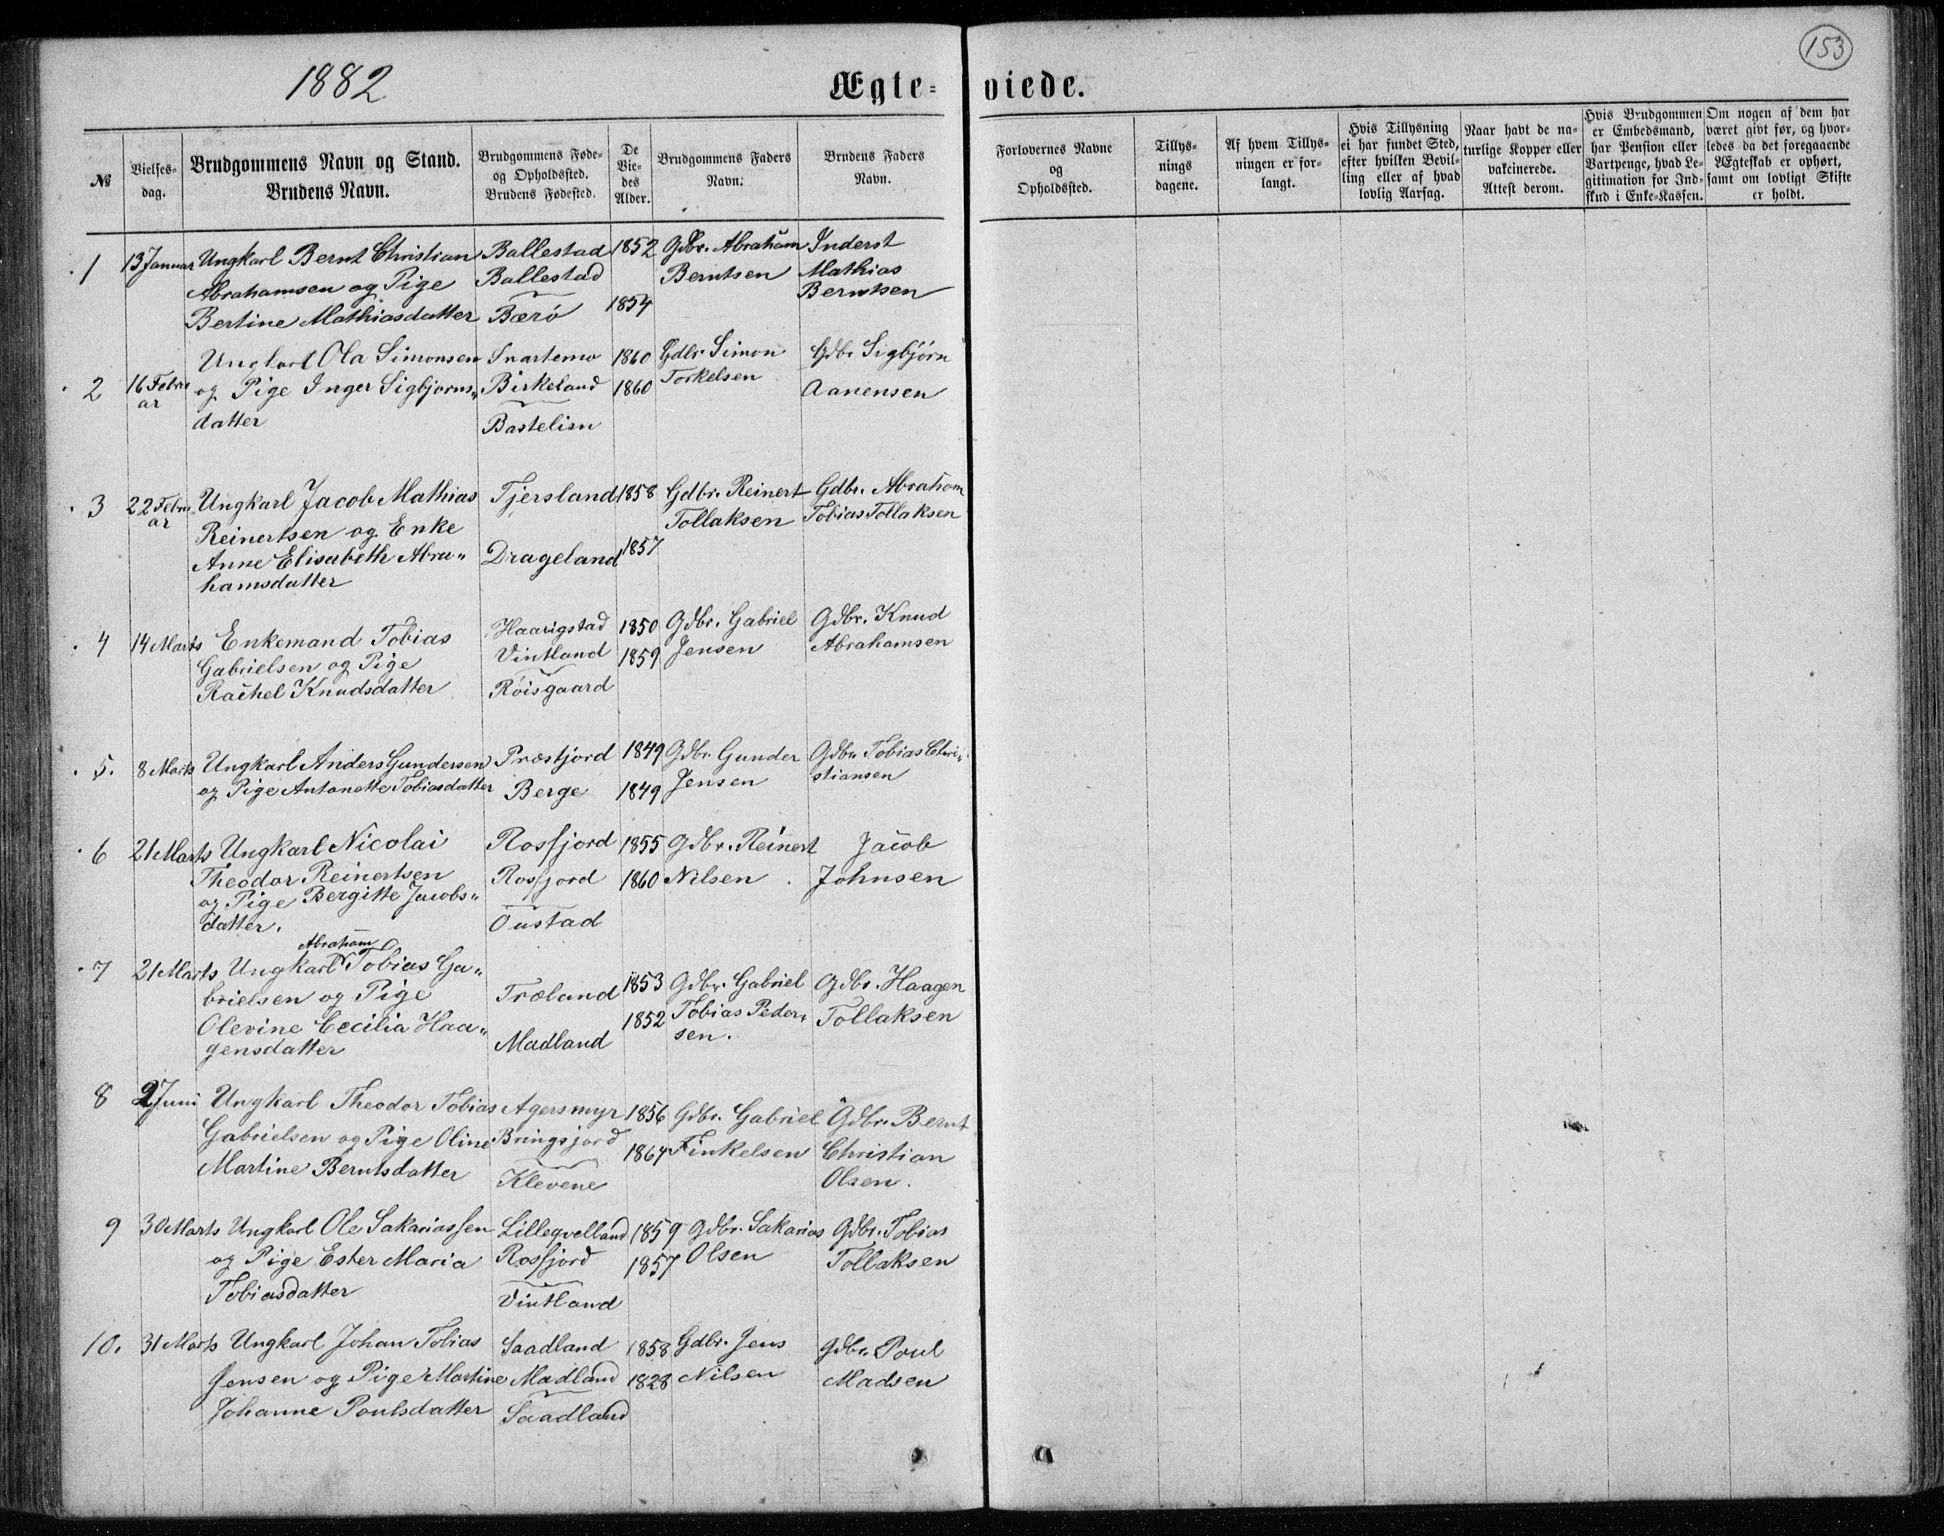 153
1882
Ægte- viede.
№
Vielses-
dag.
Brudgommens Navn og Stand.
Brudens Navn.
Brudgommens Føde-
og Opholdssted.
Brudens Fødested.
De
Vie-
des
Alder.
Brudgommens Faders
Navn.
Brudens Faders
Navn.
Forlovernes Navne
og
Opholdssted.
Tillys-
nings
dagene.
Af hvem Tillys-
ningen er for-
langt.
Hvis Tillysning
ei har fundet Sted,
efter hvilken Bevil-
ling eller af hvad
lovlig Aarsag.
Naar havt de na-
turlige Kopper eller
vakcinerede.
Attest derom.
Hvis Brudgommen
er Embedsmand,
har Pension eller
Vartpenge, hvad Le-
gitimation for Ind-
skud i Enke-Kassen.
Om nogen af dem har
været givt før, og hvor-
ledes da det foregaaende
Ægteskab er ophørt,
samt om lovligt Skifte
er holdt.
1
13 Januar
Ungkarl Bernt Christian
Abrahamsen og Pige
Bertine Mathiasdatter
Ballestad
Ballestad
Bærø
1852
1854
Gdbr. Abraham
Berntsen
Inderst
Mathias
Berntsen
2
16 Febru
ar
Ungkarl Ola Simonsen
og Pige Inger Sigbjorns„
datter
Snartemo
Birkeland
Bastelien
1860
1860
Gdbr Simon
Torkelsen
Gdbr Sigbjörn
Aanensen
3
22 Febru
ar
Ungkarl Jacob Mathias
Reinertsen og Enke
Anne Elisabeth Abra„
hamsdatter
Tjersland
Drageland
1858
1857
Gdbr. Reinert
Tollaksen
Gdbr. Abraham
Tobias Tollaksen
4
14 Marts
Enkemand Tobias
Gabrielsen og Pige
Rachel Knudsdatter
Haarigstad
Vintland
Röisgaard
1850
1859
Gdbr. Gabriel
Jensen
Gdbr. Knud
Abrahamsen
5.
8 Marts
Ungkarl Anders Gundersen
og Pige Antonette Tobiasdatter
Præstjord
Berge
1849
1849
Gdbr. Gunder
Jensen
Gdbr Tobias Chri„
stiansen
6
21 Marts
Ungkarl Nicolai
Theodor Reinertsen
og Pige Bergitte Jacobs„
datter.
Rosfjord
Rosfjord
Oustad
1855
1860
Gdbr. Reinert
Nilsen
Jacob
Johnsen
7
21 Marts
Abraham
Ungkarl Tobias Ga„
brielsen og Pige
Olevine Cecilia Haa„
gensdatter
Træland
Madland
1853
1852
Gdbr. Gabriel
Tobias Peder„
sen.
Gdbr. Haagen
Tollaksen
8
2 Juni
Ungkarl Theodor Tobias
Gabrielsen og Pige Oline
Martine Berntsdatter
Agersmyr
Bringsjord
Klevene
1856
1864
Gdbr. Gabriel
Finkelsen
Gdbr. Bernt
Christian
Olsen.
9
30 Marts
Ungkarl Ole Sakariassen
og Pige Ester Maria
Tobiasdatter
Lillegvelland
Rosfjord
Vintland
1859
1857
Gdbr. Sakarias
Olsen
Gdbr. Tobias
Tollaksen
10.
31 Marts
Ungkarl Johan Tobias
Jensen og Pige Martine
Johanne Poulsdatter
Saadland
Madland
Saadland
1858
1828
Gdbr. Jens
Nilsen
Gdbr. Poul
Madsen